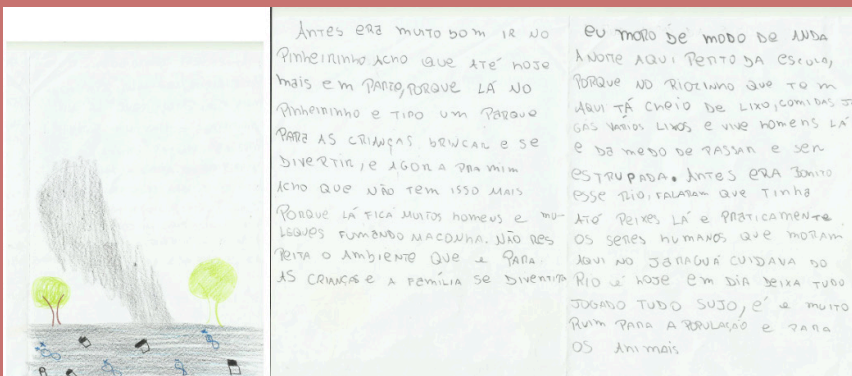 Antes era muito bom ir no
Pinheirinho acho que até hoje
mais em parte, porque lá no
Pinheirinho e tipo um parque
para as crianças brincar e se
divertir, e agora pra mim
acho que não tem isso mais
Porque lá fica muitos homens e mu-
leques fumando maconha. Não res
peita o ambiente que e para
as crianças e a família se divertir
eu moro de modo de anda
a noite aqui perto da escola,
porque no riozinho que tem
aqui tá cheio de lixo, comidas jo
gas vários lixos e vive homens lá
e da medo de passar e ser
estrupada. Antes era bonito
esse rio, falaram que tinha
até peixes lá e praticamente
os seres humanos que moram
aqui no Jaraguá cuidava do
rio e hoje em dia deixa tudo
jogado tudo sujo, é e muito
ruim para a população e para
os animais